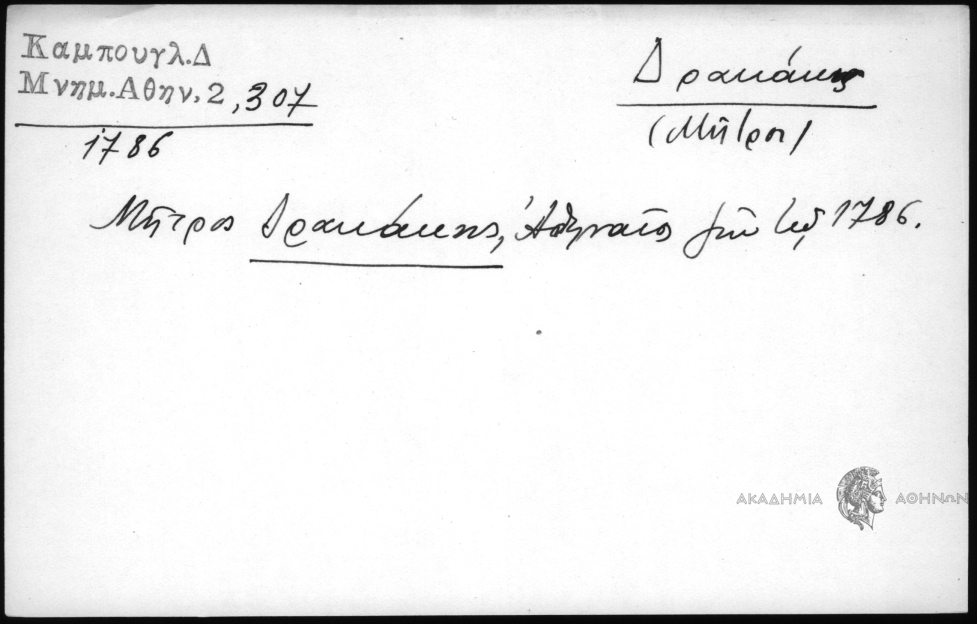 Καμπουγλ.Δ
Μνημ.Αθην, 2, 307
1786
Δρακάκης
(Μῆτρος)
Μῆτρος Δρακάκης, Ἀθηναῖος 1786.
ΑΚΑΔΗΜΙΑ ΑΘΗΝΩΝ